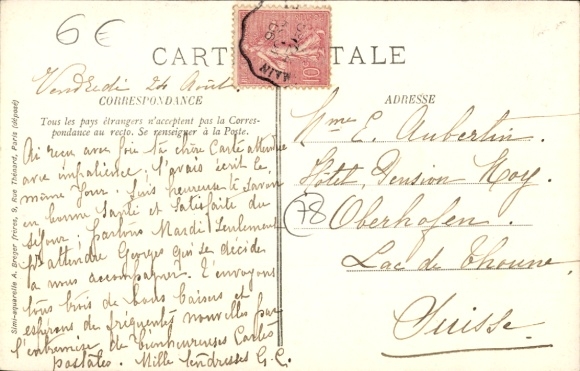 6€
CARTE POSTALE
Vendredi 24 Août.
CORRESPONDANCE
Tous les pays étrangers n'acceptent pas la Corres-
pondance au recto. Se renseigner à la Poste.
Ai reçu avec joie ta chère Carte attendue
avec impatience; t'avais écrit le
même jour. Suis heureuse te savoir
en bonne santé et satisfaite du
séjour; partons Mardi seulement
pr attendre Georges qui se décide
à nous accompagner. T'envoyons
tous trois de bons baisers et
espérons de fréquentes nouvelles par
l'entremise de bienheureuses Cartes
postales. Mille tendresses G.C.
ADRESSE
Mme E. Aubertin.
Hôtel, Pension Moy.
78
Oberhofen.
Lac de Thoune
Suisse
Simi-aquarelle A. Breger frères, 9, Rue Thénard, Paris (déposé)